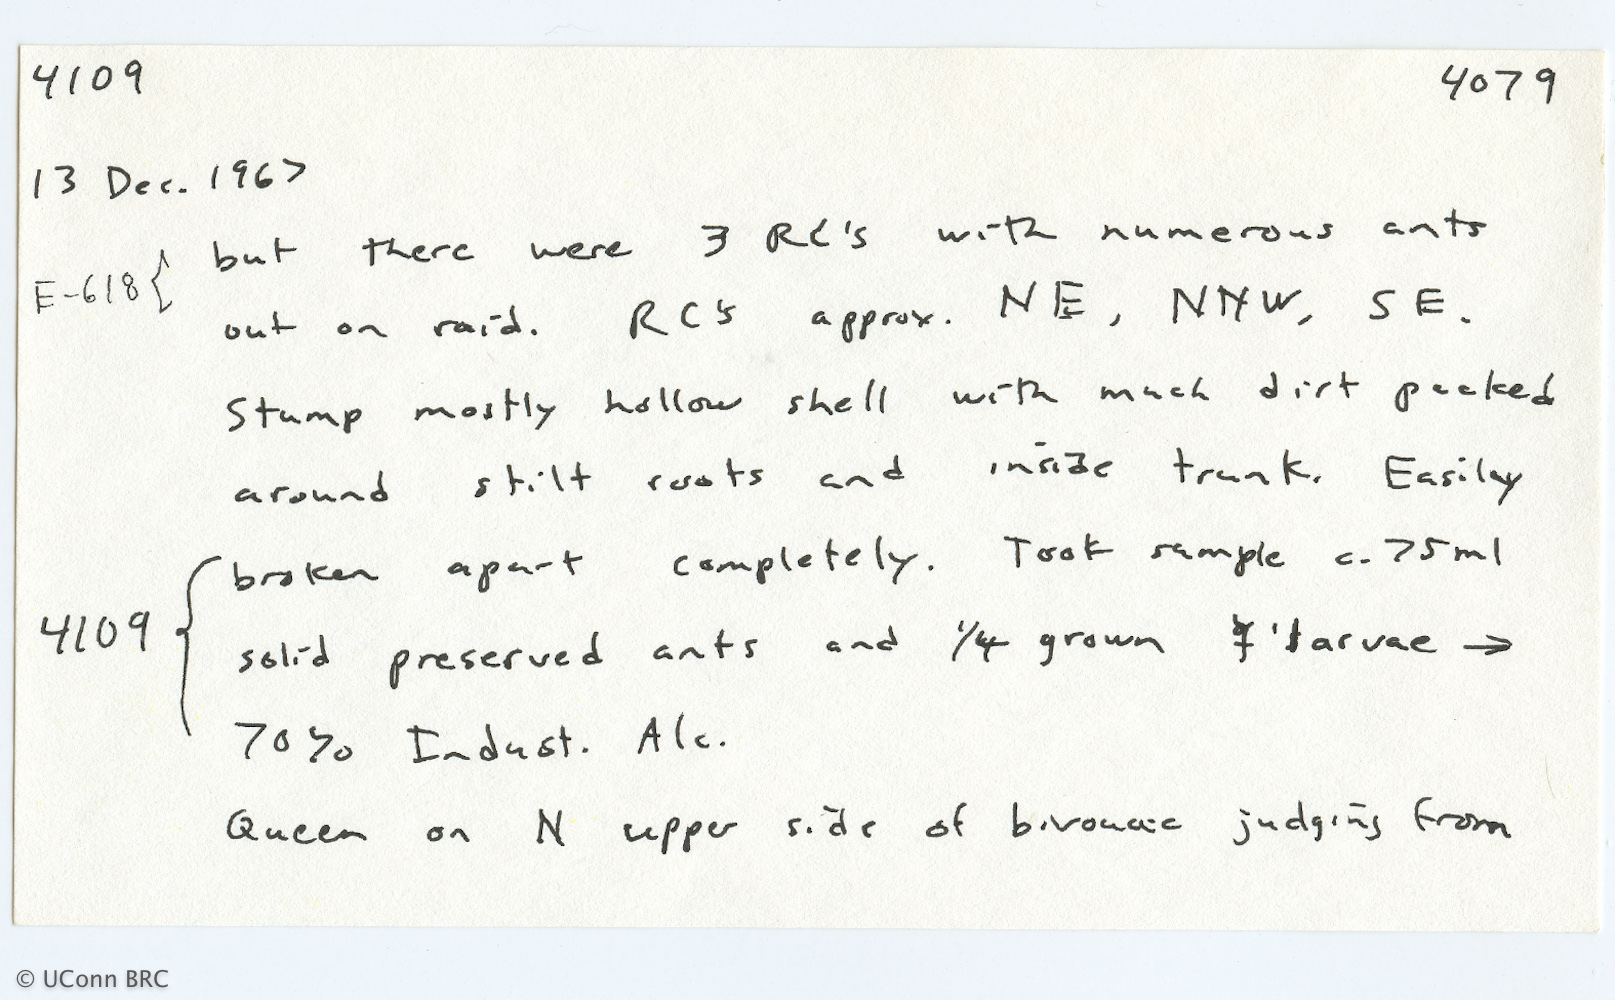 4109 4079
13 Dec. 1967
but there were 3 RC's with numerous ants
E-618 { out on raid. RC's approx. NE, NNW, SE.
Stump mostly hollow shell with much dirt packed
around stilt roots and inside trunk. Easily
broken apart completely. Took sample c. 75ml
4109 { solid preserved ants and 1/4 grown larvae →
70% Indust. Alc.
Queen on N upper side of bivouac judging from
© UConn BRC